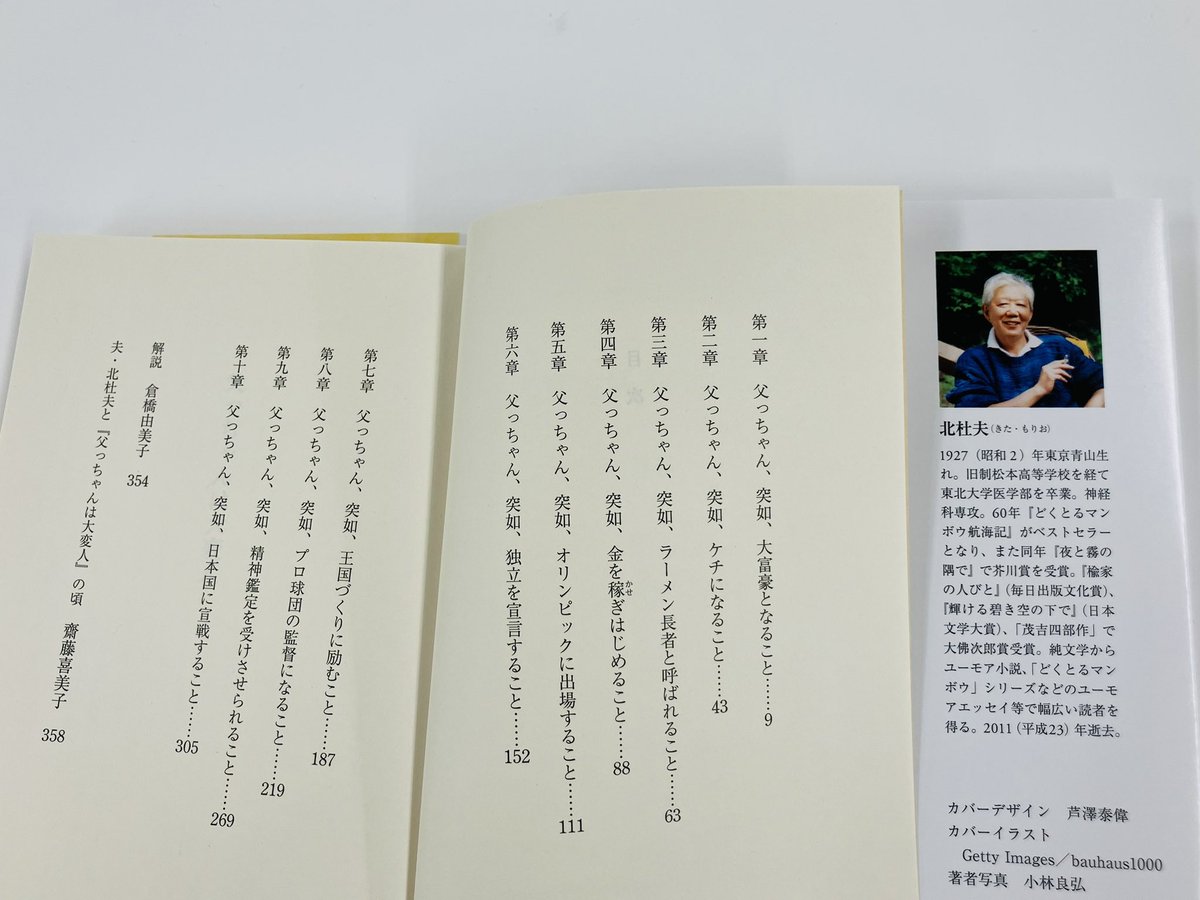 北杜夫(きた・もりお)
1927（昭和2）年東京青山生
れ。旧制松本高等学校を経て
東北大学医学部を卒業。神経
科専攻。60年『どくとるマン
ボウ航海記』がベストセラー
となり、また同年『夜と霧の
隅で』で芥川賞を受賞。『楡家
の人びと』(毎日出版文化賞)、
『輝ける碧き空の下で』(日本
文学大賞)、「茂吉四部作」で
大佛次郎賞受賞。純文学から
ユーモア小説、「どくとるマン
ボウ」シリーズなどのユーモ
アエッセイ等で幅広い読者を
得る。2011(平成23)年逝去。
カバーデザイン　芦澤泰偉
カバーイラスト
Getty Images／bauhaus1000
著者写真　小林良弘
目次
第一章　父っちゃん、突如、大富豪となること……9
第二章　父っちゃん、突如、ケチになること……43
第三章　父っちゃん、突如、ラーメン長者と呼ばれること……63
第四章　父っちゃん、突如、金を稼(かせ)ぎはじめること……88
第五章　父っちゃん、突如、オリンピックに出場すること……111
第六章　父っちゃん、突如、独立を宣言すること……152
第七章　父っちゃん、突如、王国づくりに励むこと……187
第八章　父っちゃん、突如、プロ球団の監督になること……219
第九章　父っちゃん、突如、精神鑑定を受けさせられること……269
第十章　父っちゃん、突如、日本国に宣戦すること……305
解説　倉橋由美子　354
夫・北杜夫と『父っちゃんは大変人』の頃　齋藤喜美子　358